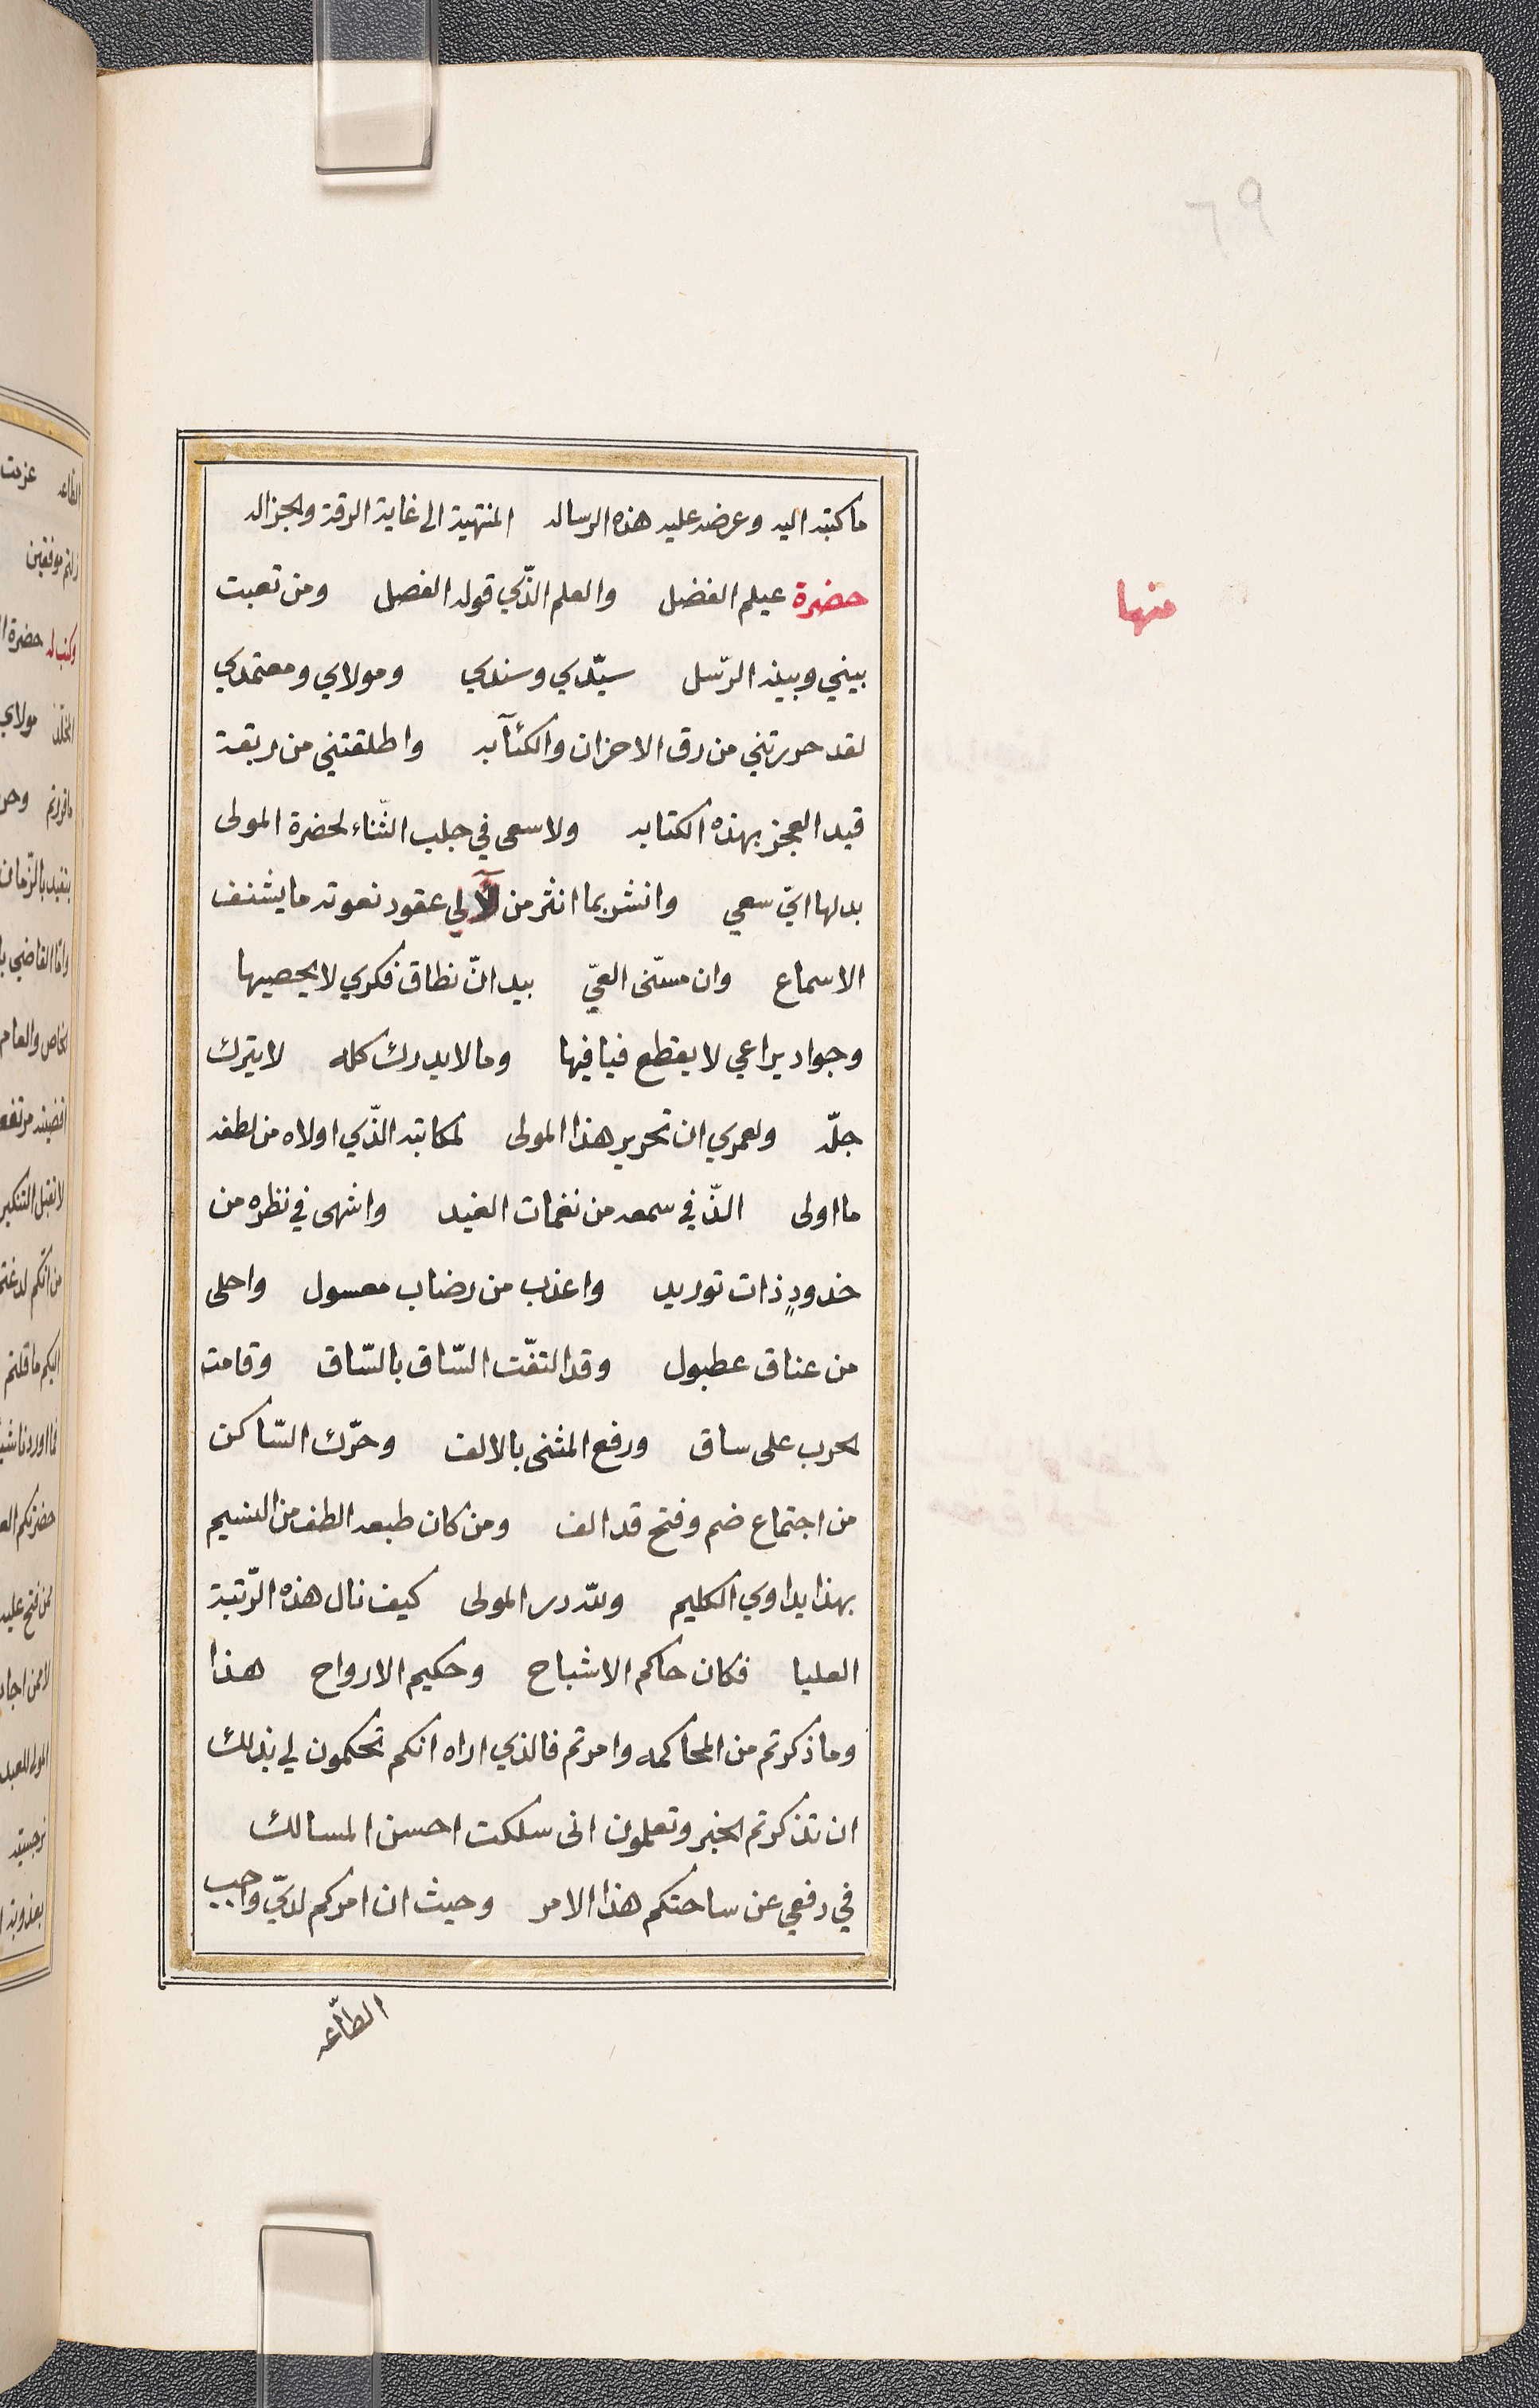 ما كتبه اليه وعرضه عليه هذه الرساله المنتهية الى غاية الرقة والجزاله
منها
حضرة عيلم الفضل والعلم الذّي قوله الفصل ومن تعبت
بيني وبينه الرّسل سيّدي وسندي ومولاي ومعتمدي
لقد حررتني من رق الاحزان والكئآبه واطلقتني من ربقة
قيد العجز بهذه الكتابه ولاسعى في جلب الثّناء لحضرة المولى
بدلها ايّ سعي وانشر بما انثر من لآلي عقود نعوته ما يشنف
الاسماع وان مسّنى العيّ بيد انّ نطاق فكري لا يحصيها
وجواد يراعي لا يقطع فيافيها وما لا يدرك كله لا يترك
جلّه ولعمري ان تحرير هذا المولى لمكاتبه الذّي اولاه من لطفه
ما اولى الذّ في سمعه من نغمات الغيد واشهى في نظره من
خدودٍ ذات توريد واعذب من رضاب معسول واحلى
من عناق عطبول وقد التفّت السّاق بالسّاق وقامت
لحرب على ساق ورفع المثنى بالالف وحرّك السّاكن
من اجتماع ضم وفتح قد الف ومن كان طبعه الطف من النسيم
بهذا يداوي الكليم ولله در المولى كيف نال هذه الرّتبة
العليا فكان حاكم الاشباح وحكيم الارواح هذا
وما ذكرتم من المحاكمه وامرتم فالذي اراه انكم تحكمون لي بذلك
ان تذكرتم الخبر وتعلمون انى سلكت احسن المسالك
في دفعي عن ساحتكم هذا الامر وحيث ان امركم لديّ واجب
الطّاعه